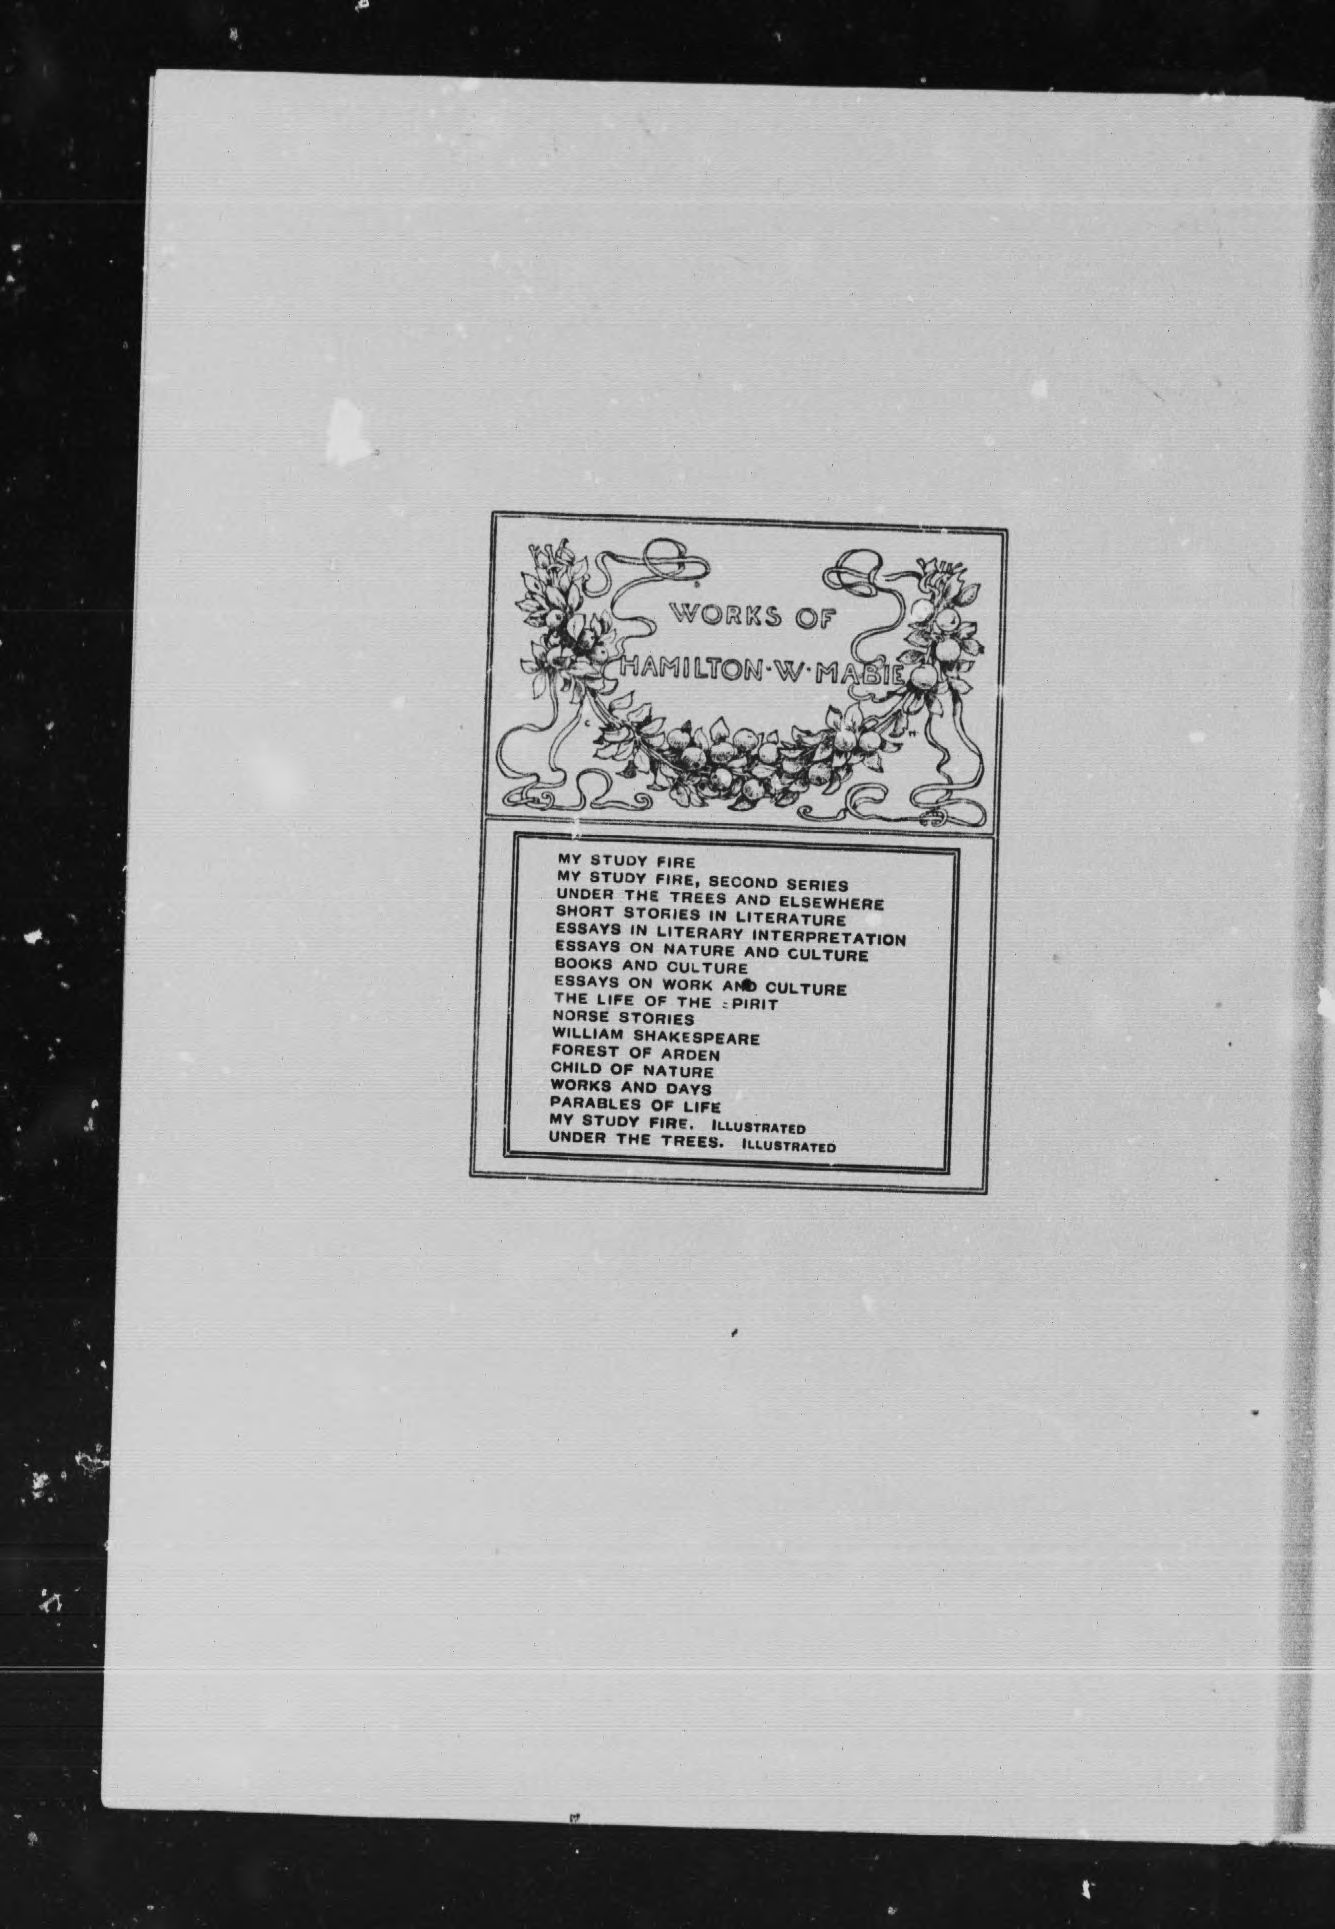 WORKS OF
HAMILTON·W·MABIE
MY STUDY FIRE
MY STUDY FIRE, SECOND SERIES
UNDER THE TREES AND ELSEWHERE
SHORT STORIES IN LITERATURE
ESSAYS IN LITERARY INTERPRETATION
ESSAYS ON NATURE AND CULTURE
BOOKS AND CULTURE
ESSAYS ON WORK AND CULTURE
THE LIFE OF THE SPIRIT
NORSE STORIES
WILLIAM SHAKESPEARE
FOREST OF ARDEN
CHILD OF NATURE
WORKS AND DAYS
PARABLES OF LIFE
MY STUDY FIRE. ILLUSTRATED
UNDER THE TREES. ILLUSTRATED